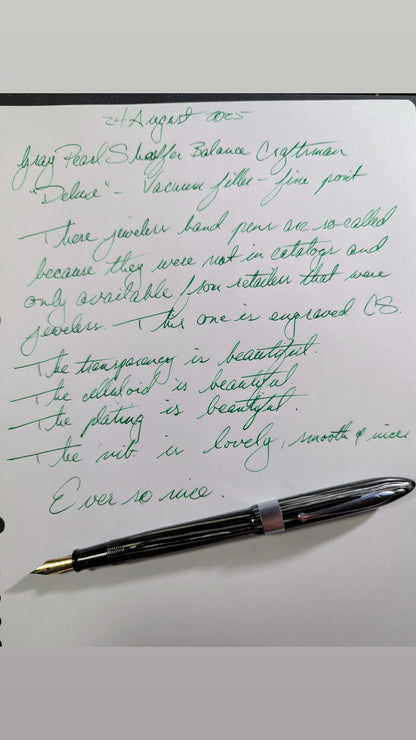 24 August 2025
Gray Pearl Sheaffer Balance Craftsman
"Deluxe" - Vacuum filler - fine point
These jewelers band pens are so-called
because they were not in catalogs and
only available from retailers that were
jewelers. This one is engraved CS.
The transparency is beautiful.
The celluloid is beautiful.
The plating is beautiful.
The nib is lovely, smooth & nice
Ever so nice.